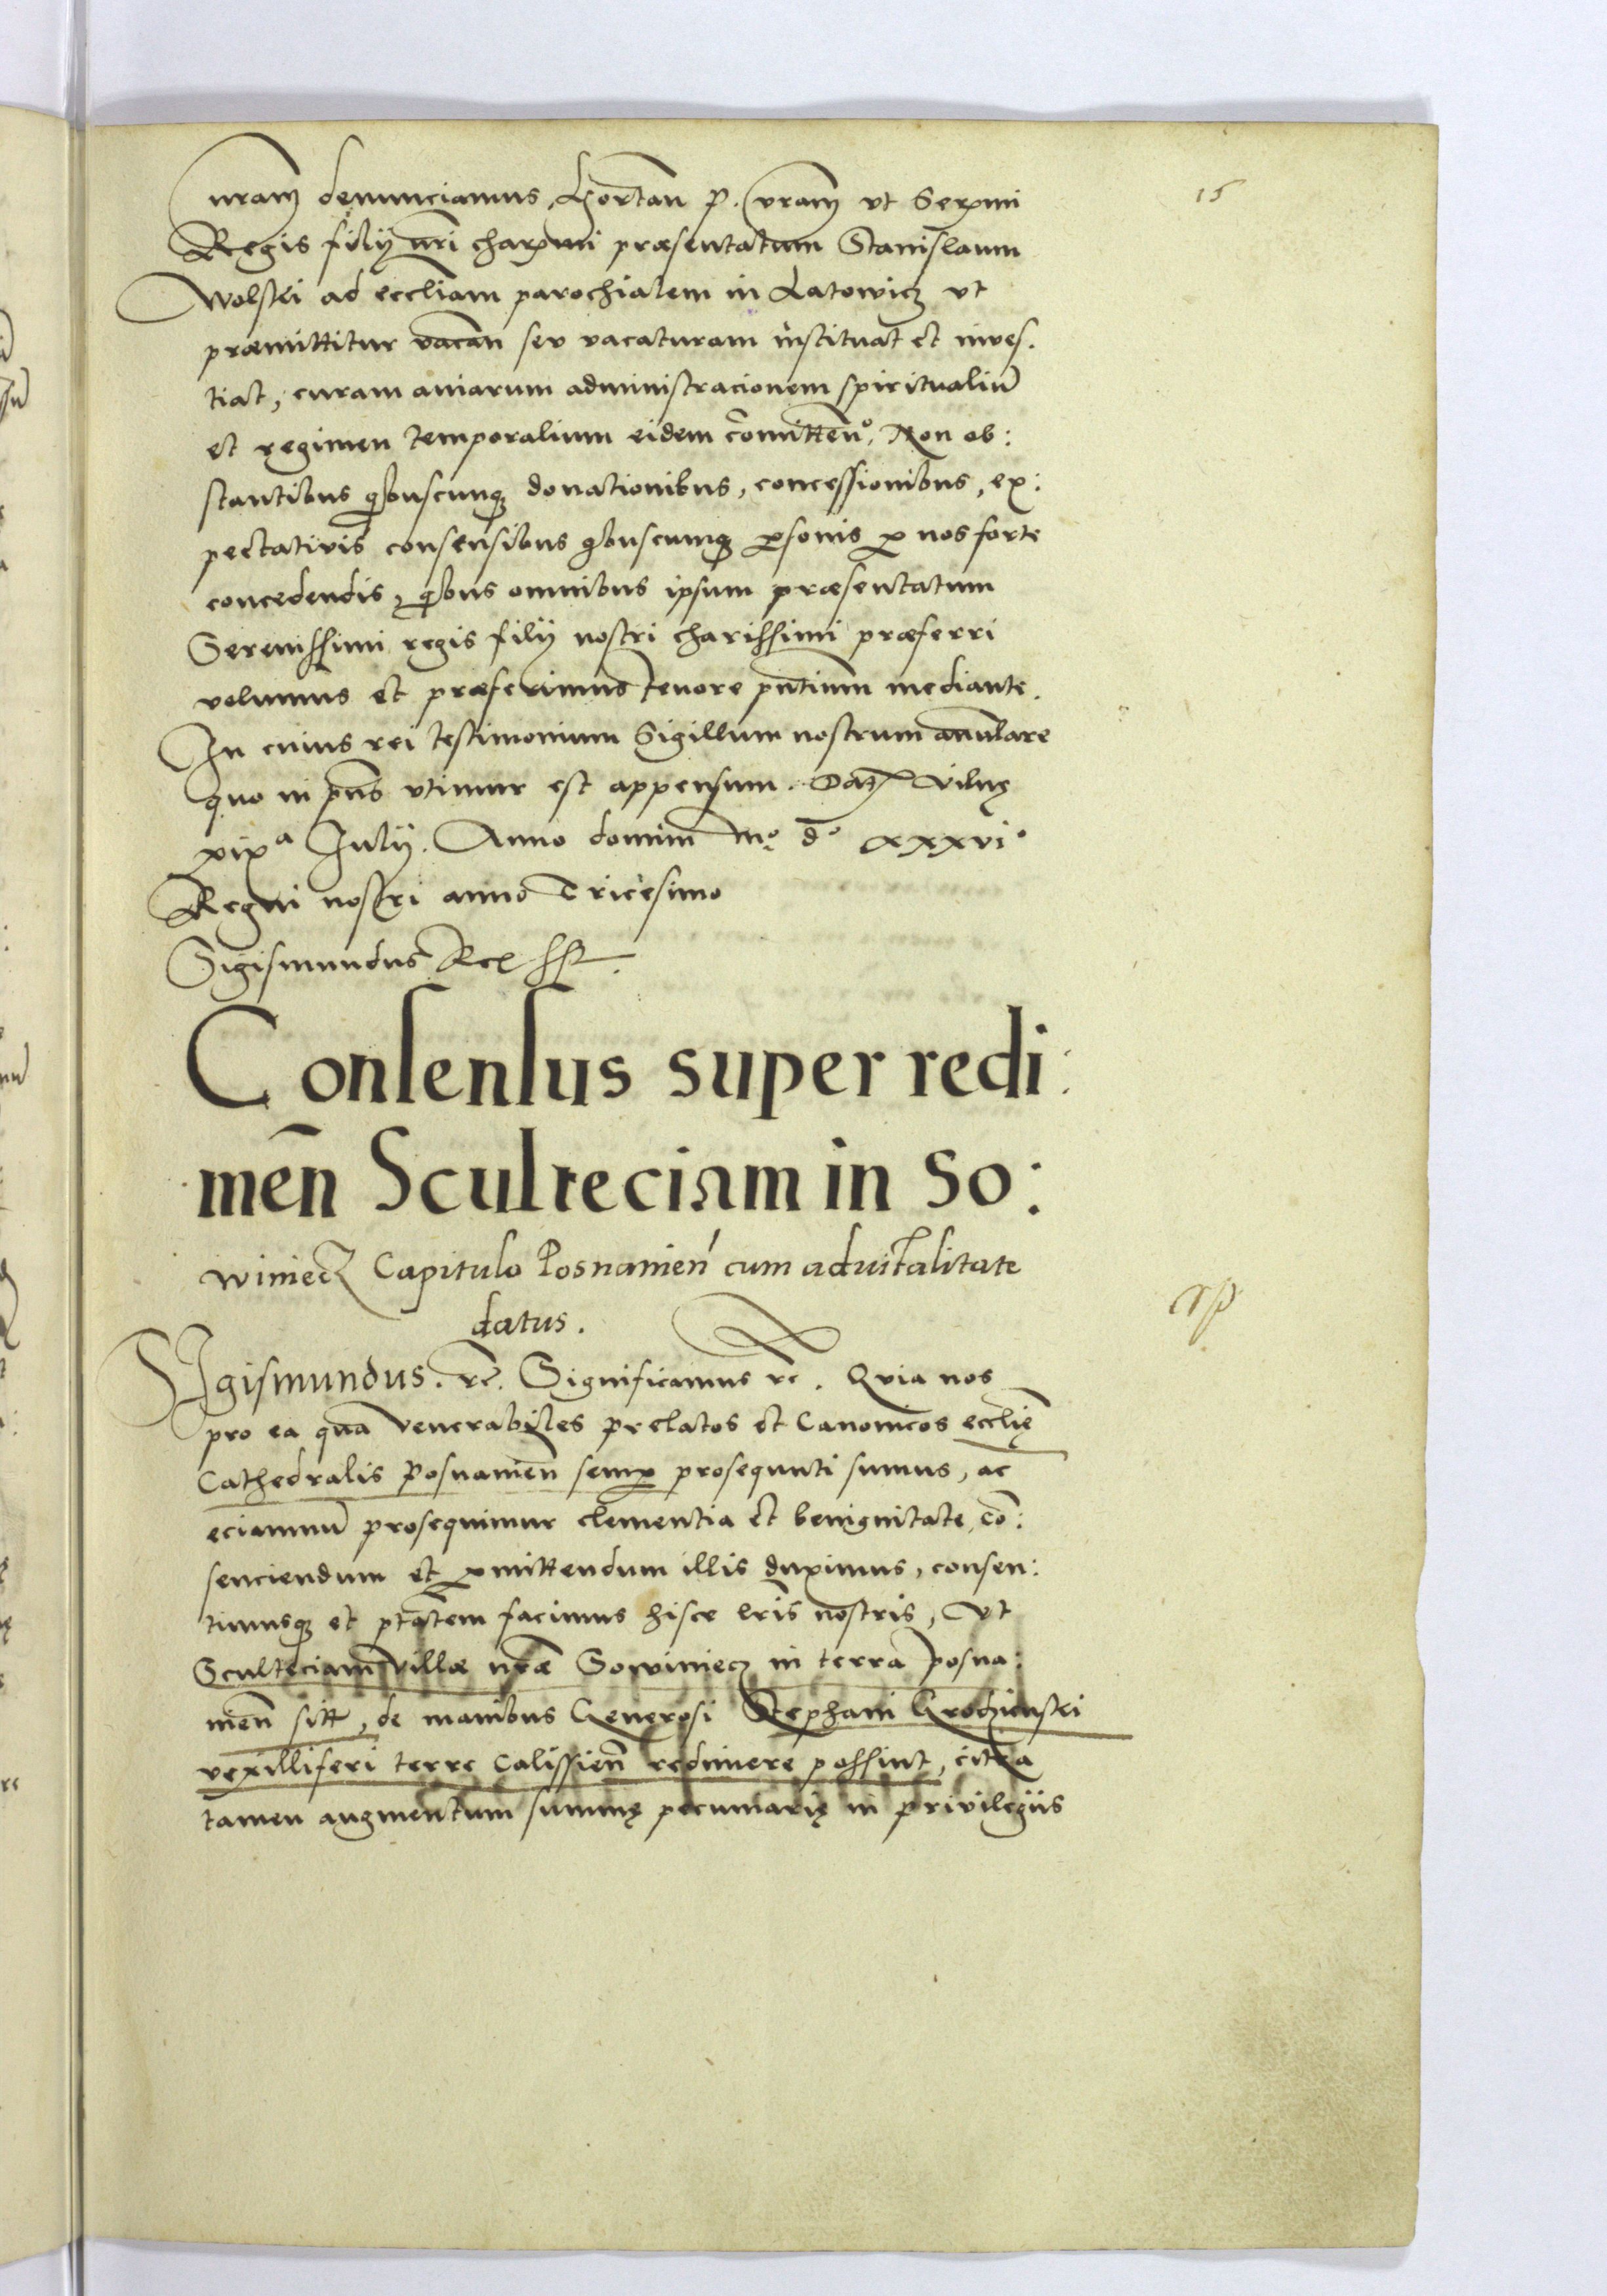 15
uram denunciamus, Hortan p. vram ut Sermi
Regis filij nri charmi præsentatum Stanislaum
Wolski ad eccliam parochialem in Latowicz ut
præmittitur vacan seu vacaturam instituat et inves.
tiat, curam aniarum administracionem spiritualiu
et regimen temporalium eidem comitten. Non ob:
stantibus qbuscunq donationibus, concessionibus, ex:
pectativis consensibus qbuscumq psonis p nos forte
concedendis, qbus omnibus ipsum præsentatum
Serenissimi regis filij nostri charissimi præferri
volumus et præferimus tenore pntium mediante.
In cuius rei testimonium Sigillum nostrum anulare
quo in pns utimur est appensum. Dat Vilnę
xixa Julij. Anno domini mo do xxxvio
Regni nostri anno Tricesimo
Sigismundus Rex sst.
Consensus super redi:
men Sculteciam in So:
winiecz Capitulo Posnanien cum advitalitate
datus.
Sp
Sigismundus. rc. Significamus rc. Quia nos
pro ea qua venerabiles prelatos et Canonicos ecclię
Cathedralis Posnanien semp prosequuti sumus, ac
eciamnu prosequimur clementia et benignitate, co:
senciendum et pmittendum illis duximus, consen:
timusq et ptatem facimus hisce lris nostris, Ut
Sculteciam villæ nræ Sowiniecz in terra Posna:
nien sitt, de manibus Generosi Stephani Grodzienski
vexilliferi terre Calissien redimere possint, citra
tamen augmentum summę pecuniarię in privilegiis